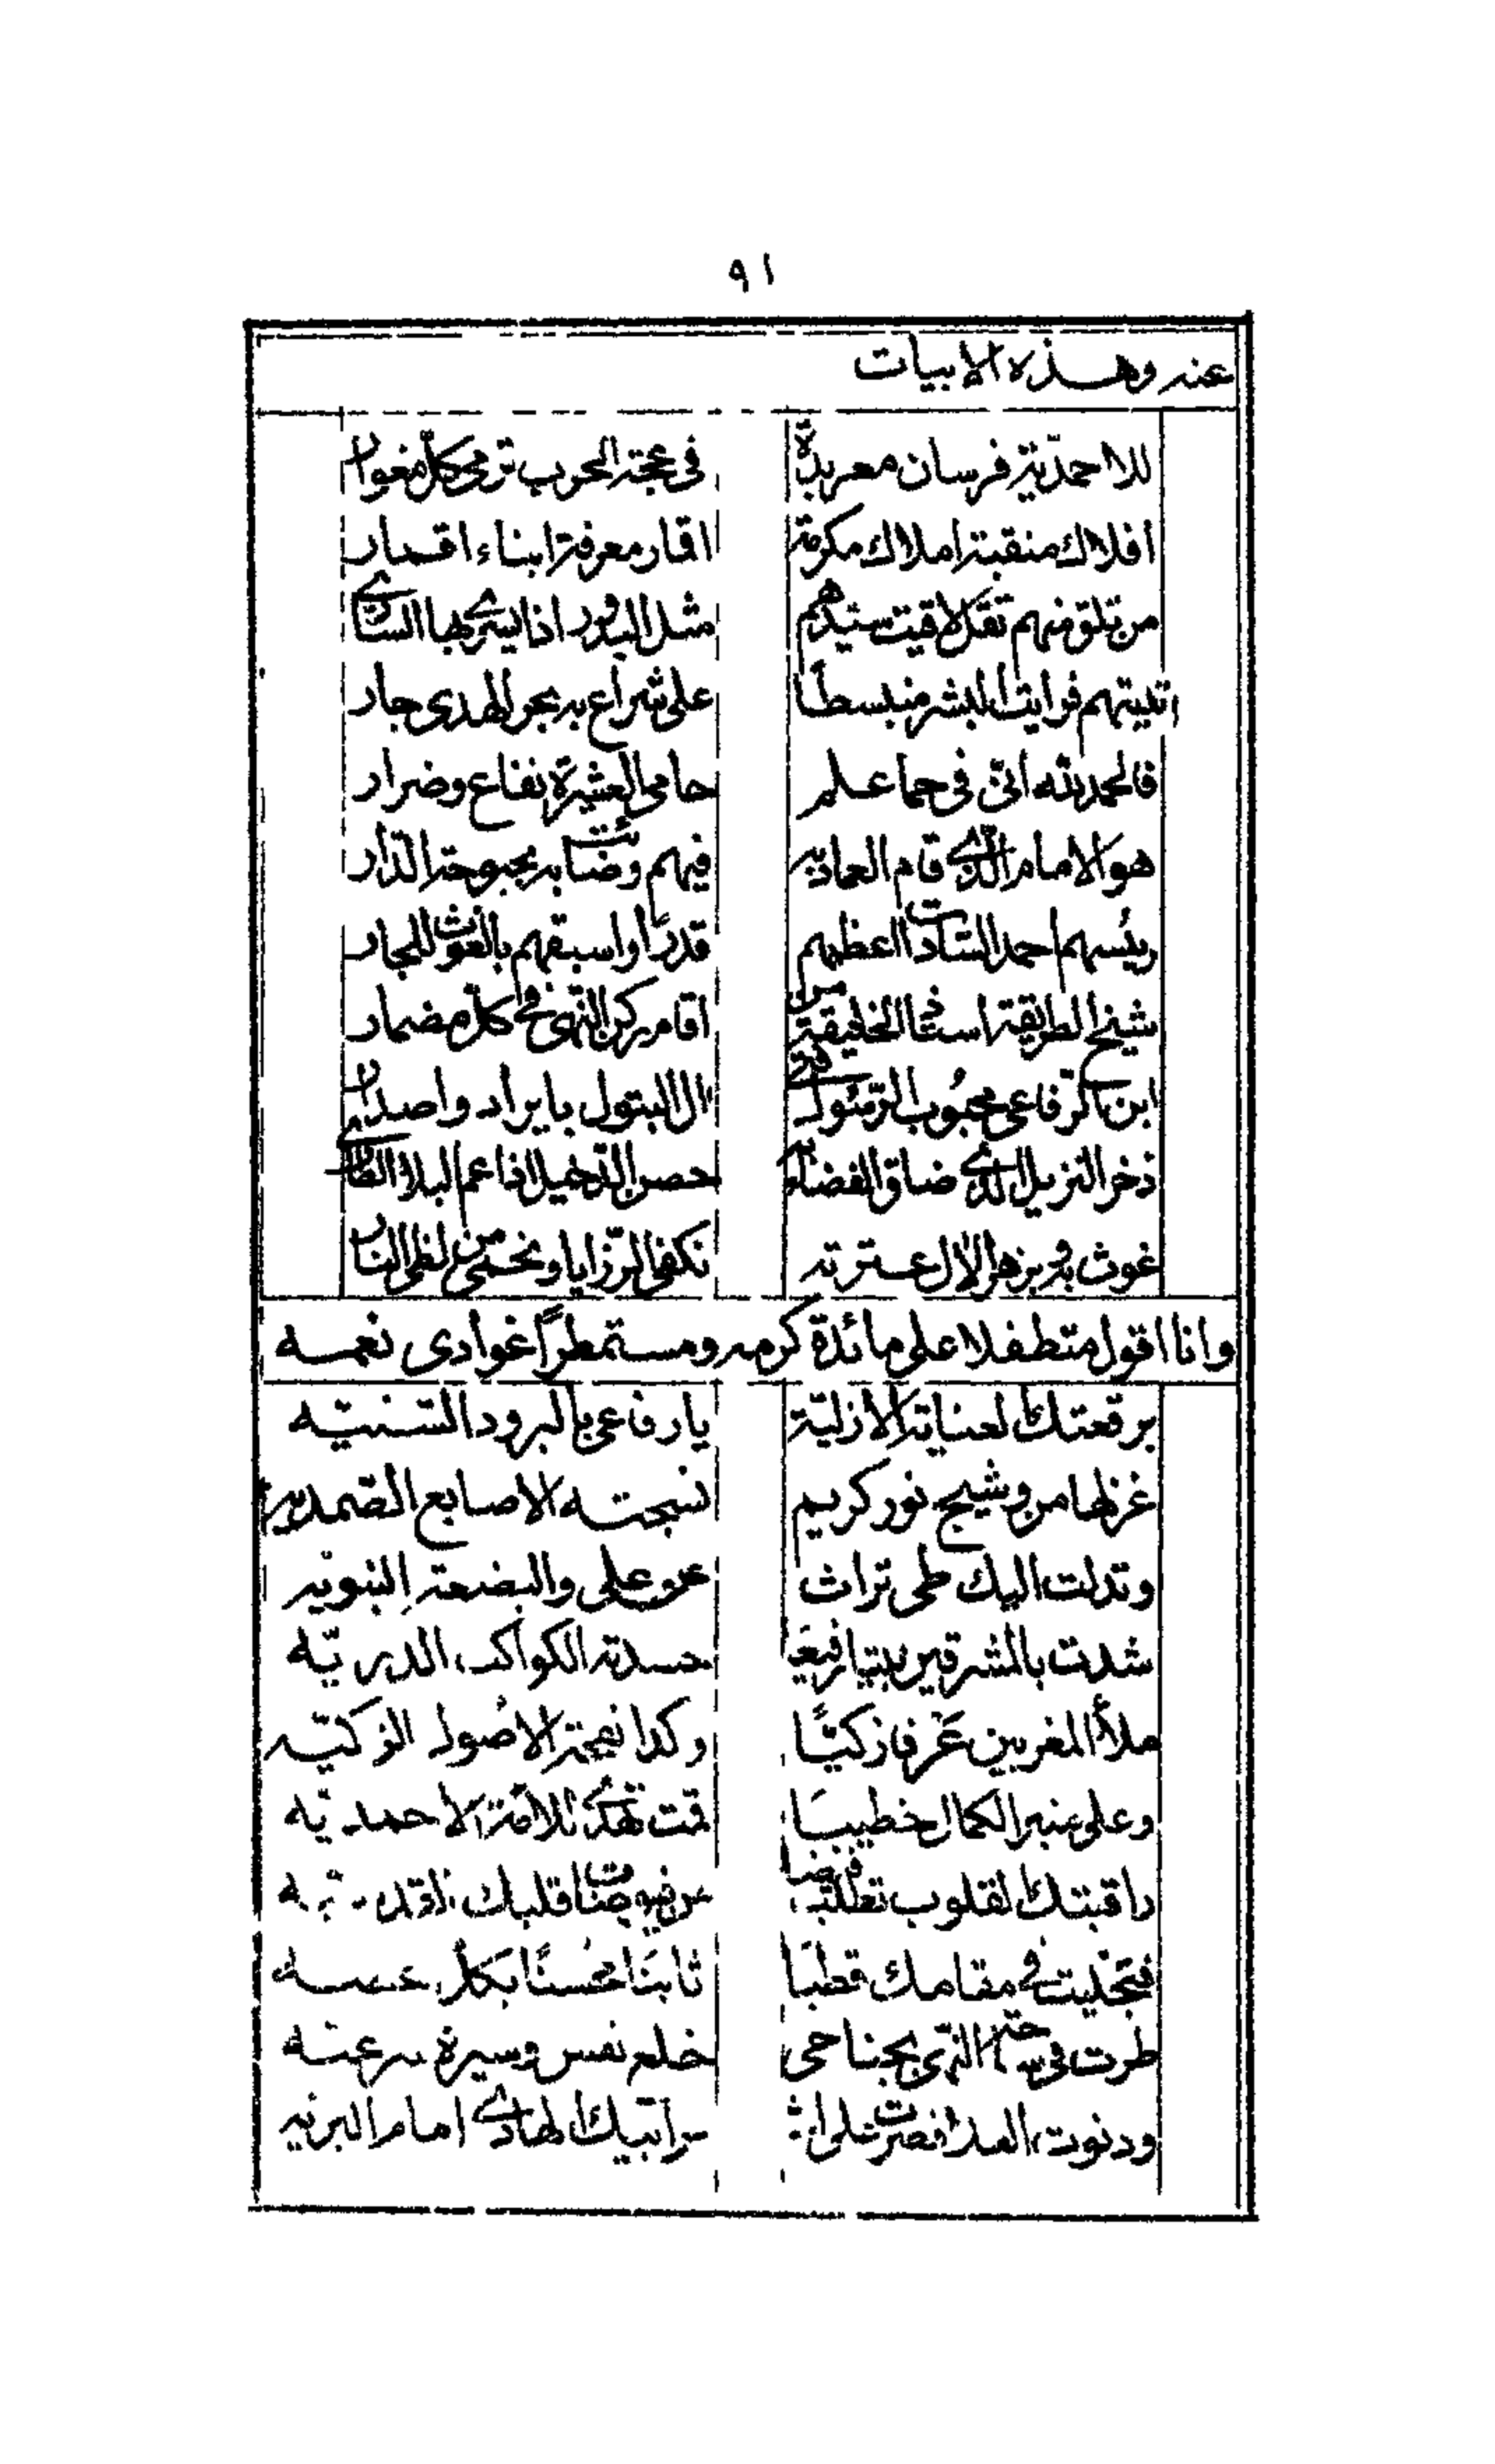 ٩١
عنه وهذه الابيات
للاحمديّة فرسان معربدة في عجة الحرب ترمى كلّ مغوار
افلاك منقبة املاك مكرمة اقمار معرفة ابناء اقمار
من تلق منهم تقل لاقيت سيدهم مثل البدور اذا يسري بها الساري
اتيتهم فرايت البشر منبسطًا على شراع به بحر الهدى جار
فالحمد لله انّى فى حما علم حامى العشيرة نفاع وضرار
هو الامام الّذي قام العماد به فيهم وضائت به بحبوحة الدّار
رئيسهم احمد السّادات اعظمهم قدرًا واسبقهم بالغوث للجار
شيخ الطريقة استاذ الخليقة من اقام ركن الهدى في كلّ مضمار
ابن الرّفاعى محبُوب الرّسُول فتى ال البتول بايراد واصدار
ذخر النزيل الذي ضاق الفضاء به حصن الدّخيل اذا عم البلاء الطاري
غوث به وبزهر الال عترته نكفى الرّزايا ونحمى من لظى النار
وانا اقول متطفلا على مائدة كرمه ومستمطرًا غوادى نعمه
برقعتك العناية الازليّة يا رفاعى بالبرود السّنيّه
غزلها من وشيج نور كريم نسجته الاصابع الصّمديّه
وتدلت اليك طى تراث عن على والبضعة النبويّه
شدت بالمشرقين بيتا رفيعًا حسدته الكواكب الدريّه
ملأ المغربين عَرفا زكيًّا وكذا نفحة الاصُول الزكيّه
وعلى منبر الكمال خطيبًا قمت تهدي للامّة الاحمديّه
راقبتك القلوب تطلب فيضا من فيوضات قلبك
فتجليت في مقامك قطبًا ثابتًا محُسنًا بكلّ
طرت في ساحة الهدى بجناحى خلع نفس وسيرة
ودنوت العلا فصرت على اثر ابيك الهادي امام البريّه